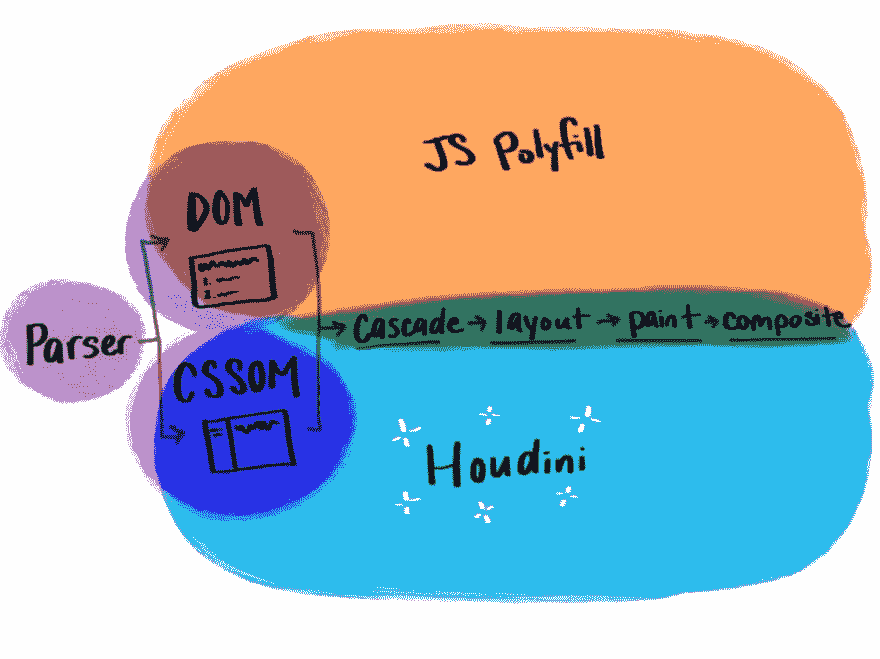 JS Polyfill
DOM
Parser
Cascade → layout → paint → composite
CSSOM
Houdini